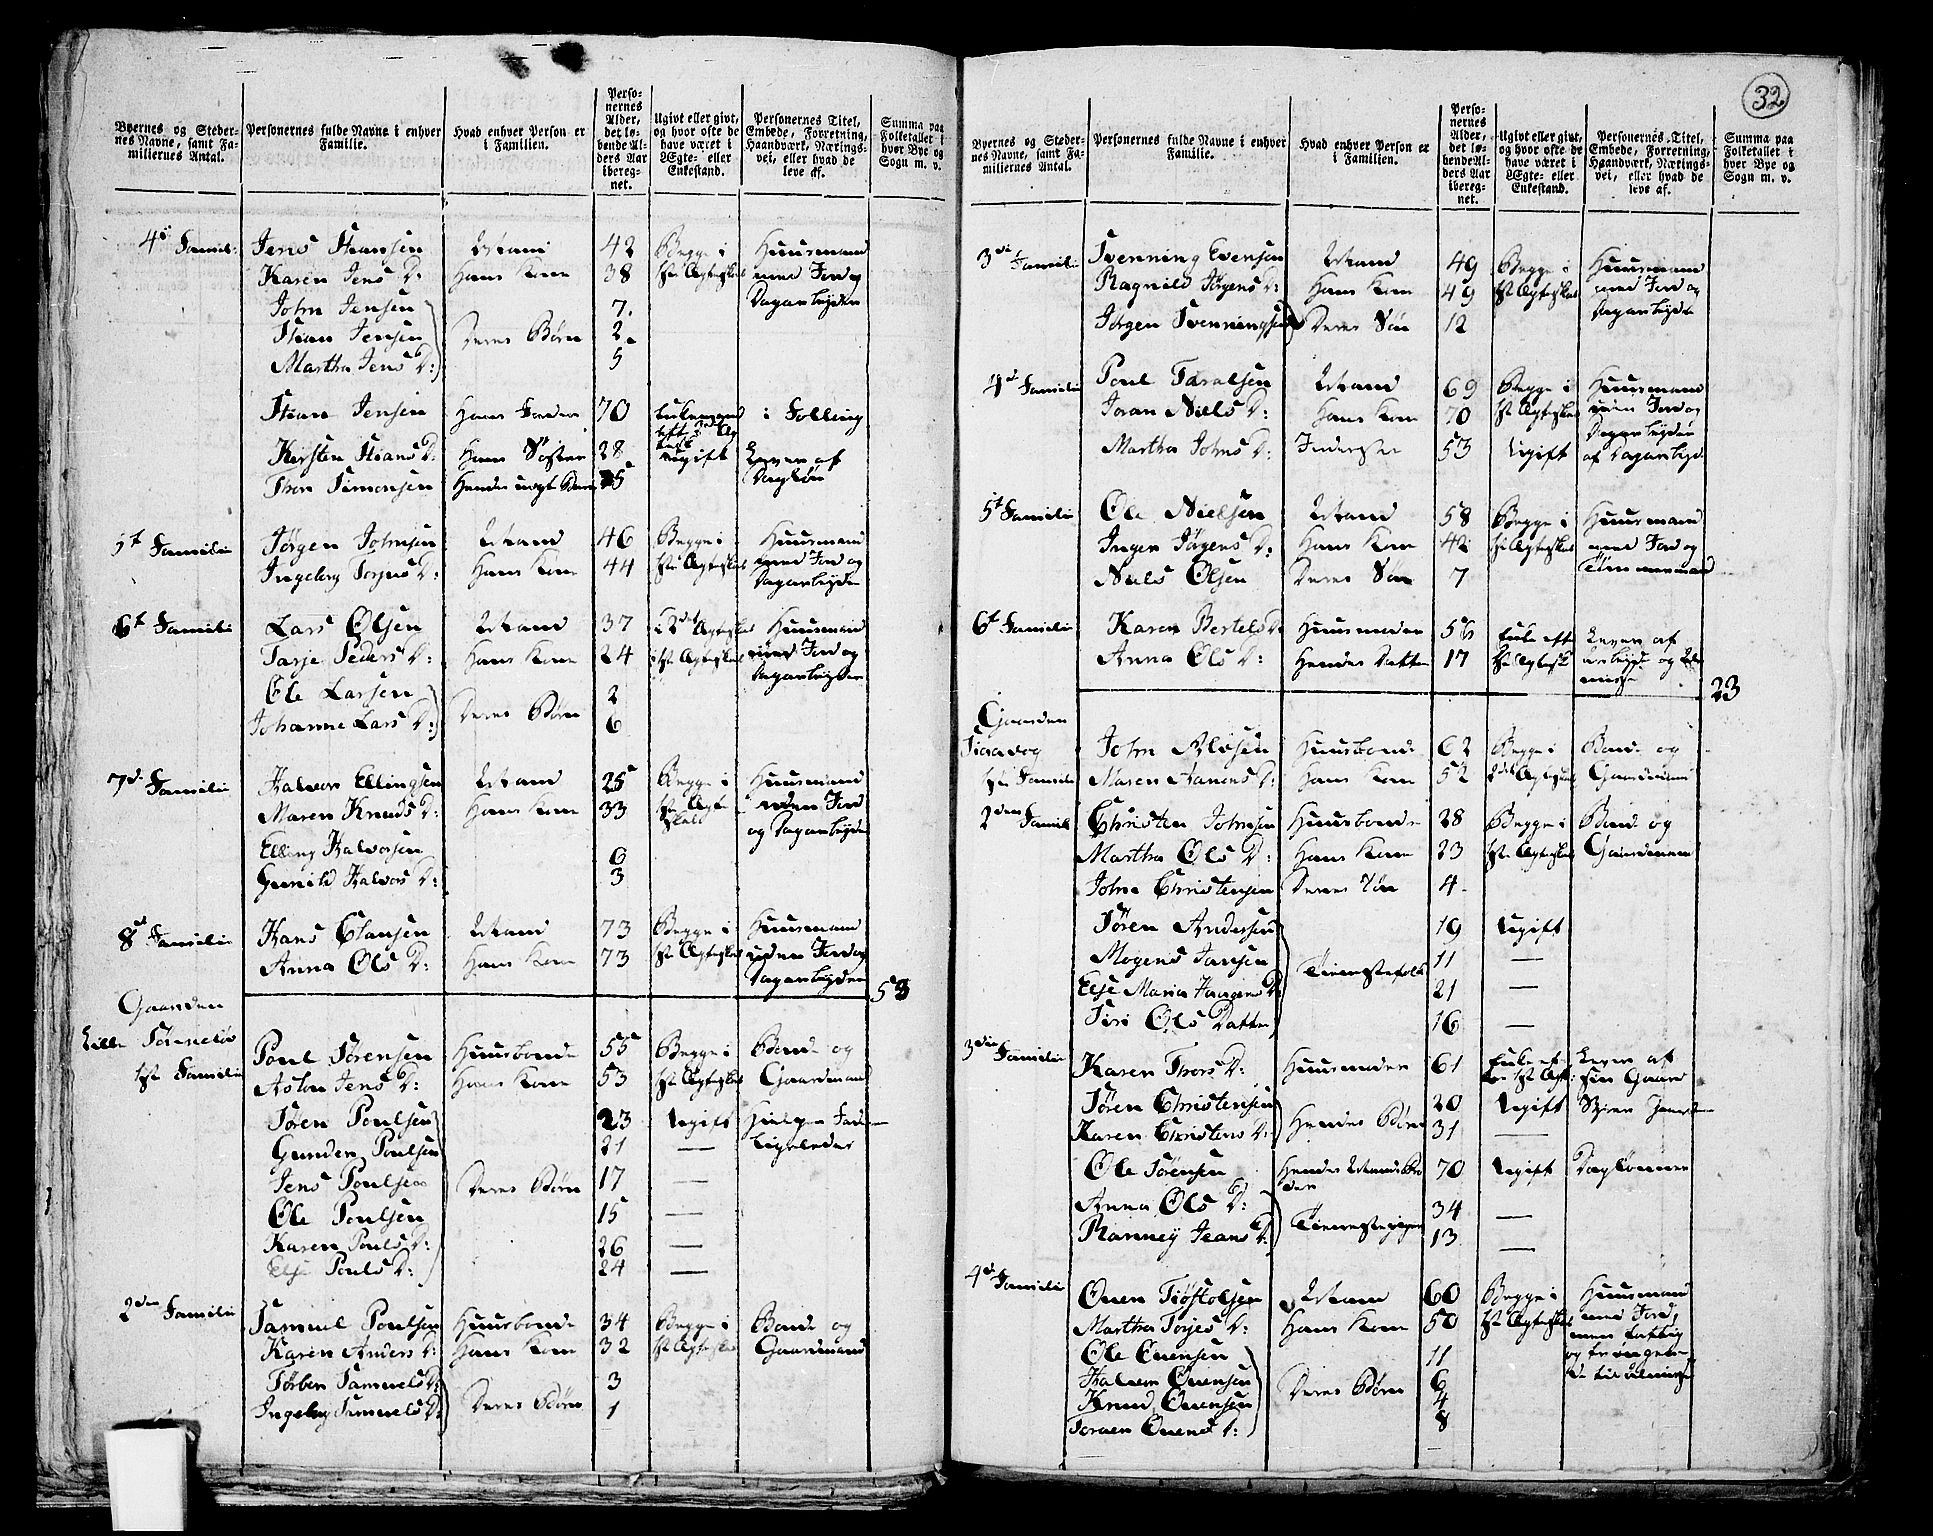 32
Byernes og Steder-
nes Navne, samt Fa-
miliernes Antal.
Personernes fulde Navne i enhver
Familie.
Hvad enhver Person er
i Familien.
Perso-
nernes
Alder,
det lø-
bende Al-
ders Aar
ibereg-
net.
Ugivt eller givt,
og hvor ofte de
have været i
Ægte- eller
Enkestand.
Personernes Titel,
Embede, Forretning,
Haandværk, Nærings-
vei, eller hvad de
leve af.
Summa paa
Folketallet i
hver Bye og
Sogn m. v.
4de Famil: Jens Hansen Mand 42 Begge i Huusmand
Karen Jens D: Hans Kone 38 1ste Ægteskab med Jord og
Dagarbeyder
John Jensen 7
Hans Jensen Deres Børn 2
Martha Jens D: 5
Hans Jensen Hans Fader 70 Enkemand i Folling
Kirsten Hans D: Hans Søster 28 ugift Lever af
Thor Simonsen Hendes uægte Barn 5 Dagløn
5te Familie Jørgen Johnsen Mand 46 Begge i Huusmand
Ingeborg Torjus D: Hans Kone 44 1ste Ægteskab med Jord og
Dagarbeyder
6te Familie Lars Olsen Mand 37 i 2det Ægteskab Huusmand
Tarje Peders D: Hans Kone 24 i 1ste Ægteskab med Jord og
Dagarbeyder
Ole Larsen 2
Johanne Lars D: Deres Børn 6
7de Familie Halvor Ellingsen Mand 25 Begge i Huusmand
Maren Knuds D: Hans Kone 33 1ste Ægte uden Jord
skab og Dagarbeyder
Elling Halvorsen 6
Gunild Halvors D: 3
8de Familie Hans Clausen Mand 73 Begge i Huusmand
Anna Ols D: Hans Kone 73 1ste Ægteskab uden Jord og
Dagarbeyder
53
Gaarden
Lille
1ste Familie Poul Sørensen Huusbonde 55 Begge i Bonde og
Aslou Jens D: Hans Kone 53 1ste Ægteskab Gaardmand
Søren Poulsen 23 Ugift Hielper Fader
Gunder Poulsen 21 — ligeledes
Jens Poulsen Deres Børn 17 —
Ole Poulsen 15 —
Karen Pouls D: 26 —
Else Pouls D: 24 —
2den Familie Samuel Poulsen Huusbonde 34 Begge i Bonde og
Karen Anders D: Hans Kone 32 1ste Ægteskab Gaardmand
Torber Samuels D: 3
Ingeborg Samuels D: Deres Børn 1
Byernes og Steder-
nes Navne, samt Fa-
miliernes Antal.
Personernes fulde Navne i enhver
Familie.
Hvad enhver Person er
i Familien.
Perso-
nernes
Alder,
det lø-
bende Al-
ders Aar
ibereg-
net.
Ugivt eller givt,
og hvor ofte de
have været i
Ægte- eller
Enkestand.
Personernes Titel,
Embede, Forretning,
Haandværk, Nærings-
vei, eller hvad de
leve af.
Summa paa
Folketallet i
hver Bye og
Sogn m. v.
3die Familie Svenning Evensen Mand 49 Begge i Huusmand
Ragnild Jørgens D: Hans Kone 49 1ste Ægteskab med Jord og
Jørgen Svenningsen Deres Søn 12 Dagarbeyder
4de Familie Poul Taralsen Mand 69 Begge i Huusmand
Joran Niels D: Hans Kone 70 1ste Ægteskab uden Jord og
Dagarbeyder
Martha Johns D: Inderste 53 Ugift af Dagarbeyde
5te Familie Ole Nielsen Mand 58 Begge i Huusmand
Inger Jørgens D: Hans Kone 42 1ste Ægteskab med Jord og
Niels Olsen Deres Søn 7 Tømmermand
6te Familie Karen Bertels D: Huusmoder 56 Enke efter Lever af
Anna Ols D: Hendes Datter 17 1ste Ægtesk: arbeyde og
23
Gaarden
1ste Familie John Nilsen Huusbonde 62 Begge i Bonde og
Maren Aanons D: Hans Kone 52 2det Ægteskab Gaardmand
2den Famil: Christen Johnsen Huusbonde 28 Begge i Bonde og
Martha Ols D: Hans Kone 23 1ste Ægteskab Gaardmand
John Christensen Deres Søn 4
Søren Andersen 19 Ugift
Mogens Jansen Tienestefolk 11 —
Else Maria D: 21 —
Siri Ols Datter 16 —
3die Familie Karen Thors D: Huusmoder 61 Enke ef- Lever af
ter 1ste Ægt: sin Gaard
Søren Christensen 20 Ugift
Karen Christens D: Hendes Børn 31 —
Ole Sørensen Hendes Mands Bro 70 Ugift Daglønner
der
Anna Ols D: 34 —
Ranney Jeans D: Tienestepiger 13 —
4de Familie Ouen Tiøstolsen Mand 60 Begge i Huusmand
Martha Torjes D: Hans Kone 50 1ste Ægteskab med Jord,
men fattig
og trængen-
de til
Ole Ouensen 11
Halvor Ouensen Deres Børn 6
Knud Ouensen 4
Toraen Ouens D: 8